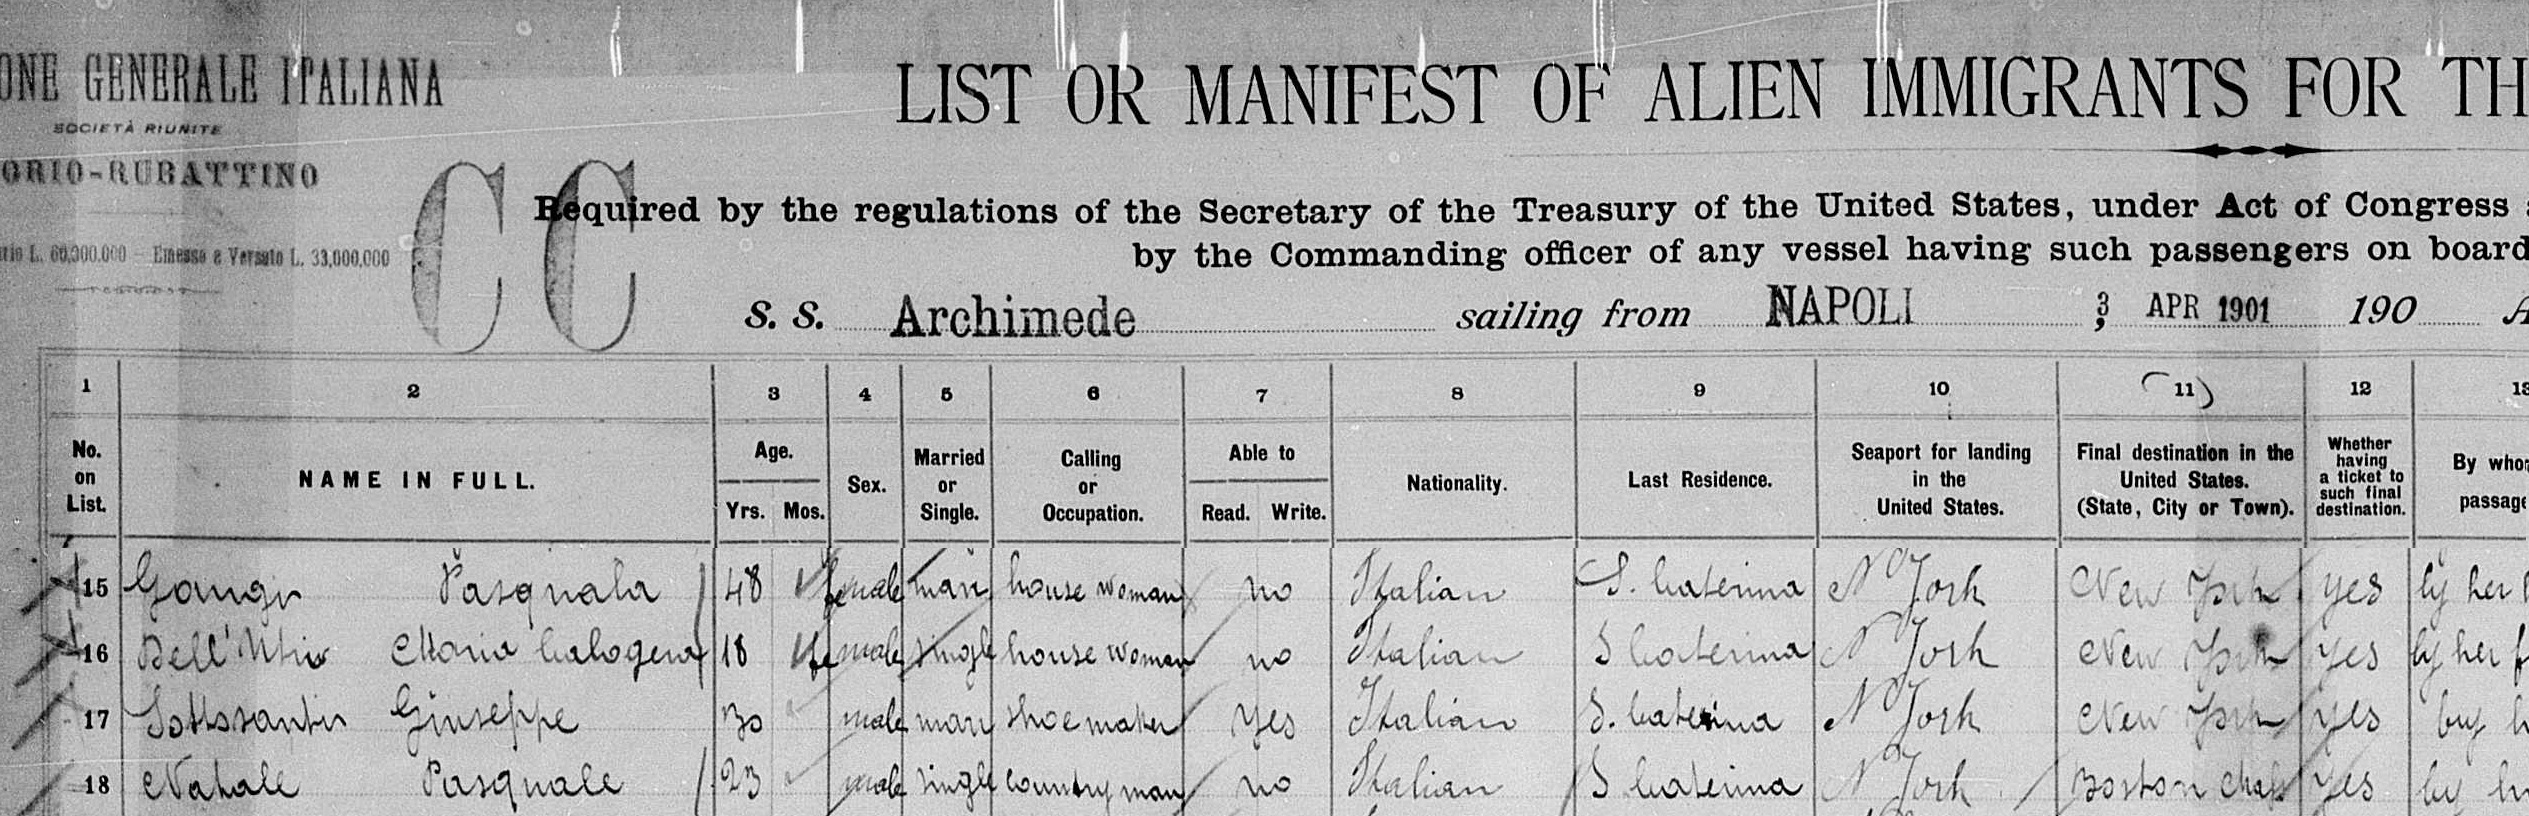 ONE GENERALE ITALIANA
SOCIETÀ RIUNITE
ORIO-RUBATTINO
L. 60,000.000 — Emesso e Versato L. 33,000,000
CC
LIST OR MANIFEST OF ALIEN IMMIGRANTS FOR TH
Required by the regulations of the Secretary of the Treasury of the United States, under Act of Congress
by the Commanding officer of any vessel having such passengers on board
S. S. Archimede sailing from NAPOLI 3 APR 1901 190 A
1 2 3 4 5 6 7 8 9 10 11 12 13
No. on List. NAME IN FULL. Age. Yrs. Mos. Sex. Married or Single. Calling or Occupation. Able to Read. Write. Nationality. Last Residence. Seaport for landing in the United States. Final destination in the United States. (State, City or Town). Whether having a ticket to such final destination. By whom passage
15 Gangi Pasquala 48 female mar house woman no Italian S. Caterina N York New York yes by her
16 Dell'Utri Maria Calogera 18 female single house woman no Italian S Caterina N York New York yes by her f
17 Sottosanti Giuseppe 30 male marr shoe maker yes Italian S. Caterina N York New York yes by h
18 Natale Pasquale 23 male single country man no Italian S Caterina N York Boston Mass yes by h